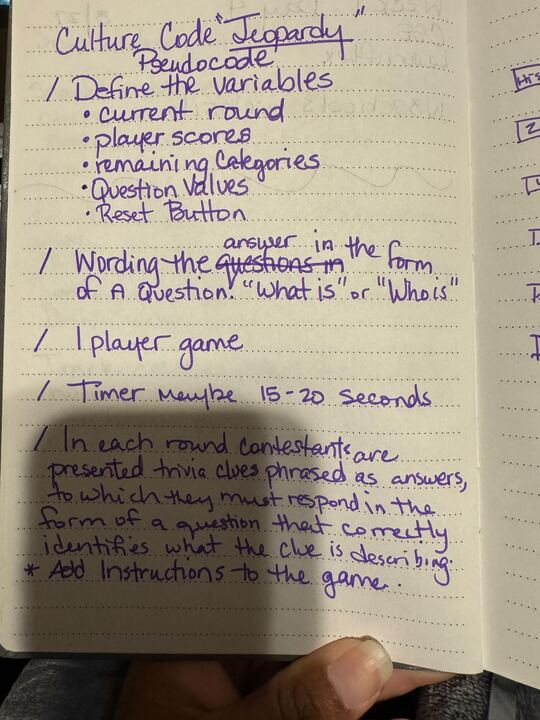 Culture Code "Jeopardy"
Pseudocode
/ Define the variables
• current round
• player scores
• remaining Categories
• Question Values
• Reset Button
answer in the form
/ Wording the questions in
of A Question. "What is" or "Who is"
/ 1 player game
/ Timer Maybe 15-20 seconds
/ In each round contestants are
presented trivia clues phrased as answers,
to which they must respond in the
form of a question that correctly
identifies what the clue is describing.
* Add Instructions to the game.
His
2